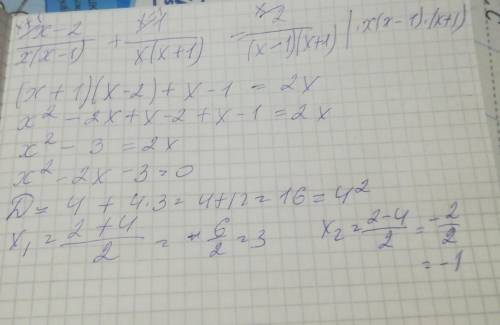 x-2/x(x-1) + 1/x(x+1) = 2/(x-1)(x+1) | · x(x-1)·(x+1)
(x+1)(x-2)+x-1 = 2x
x²-2x+x-2+x-1=2x
x²-3=2x
x²-2x-3=0
D= 4+4·3=4+12=16=4²
x₁ = 2+4/2 = 6/2 = 3 x₂= 2-4/2 = -2/2
= -1